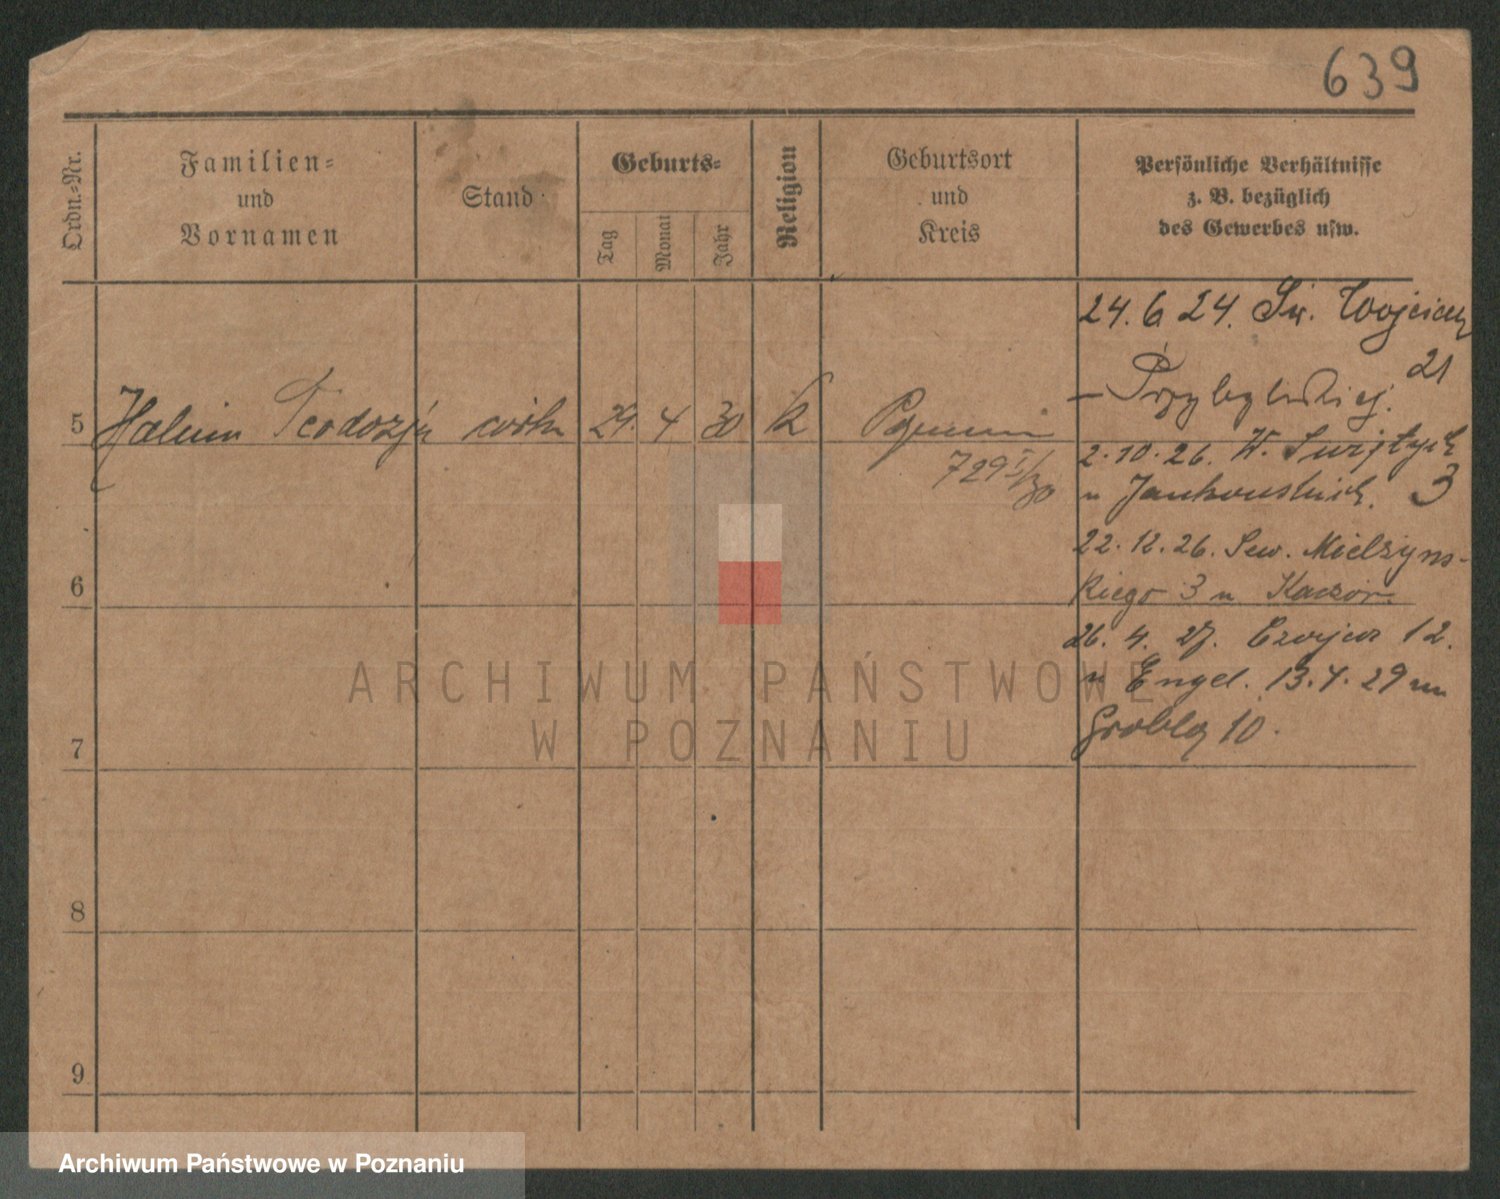 639
Ordn.-Nr.
Familien-
und
Vornamen
Stand
Geburts-
Tag
Monat
Jahr
Religion
Geburtsort
und
Kreis
Persönliche Verhältnisse
z. B. bezüglich
des Gewerbes usw.
24. 6 24. Św. Wojciech
21
5 Teodozja córka 29. 4 30 k
729 I/30
2. 10. 26. W.
u Jankowskich. 3
22. 12. 26. Sew. Mielżyńs-
kiego 3 u Kaczor
6
26. 4. 27. 12.
u Engel. 13. 4. 29
Grobla 10.
7
8
9
ARCHIWUM PAŃSTWOWE
W POZNANIU
Archiwum Państwowe w Poznaniu